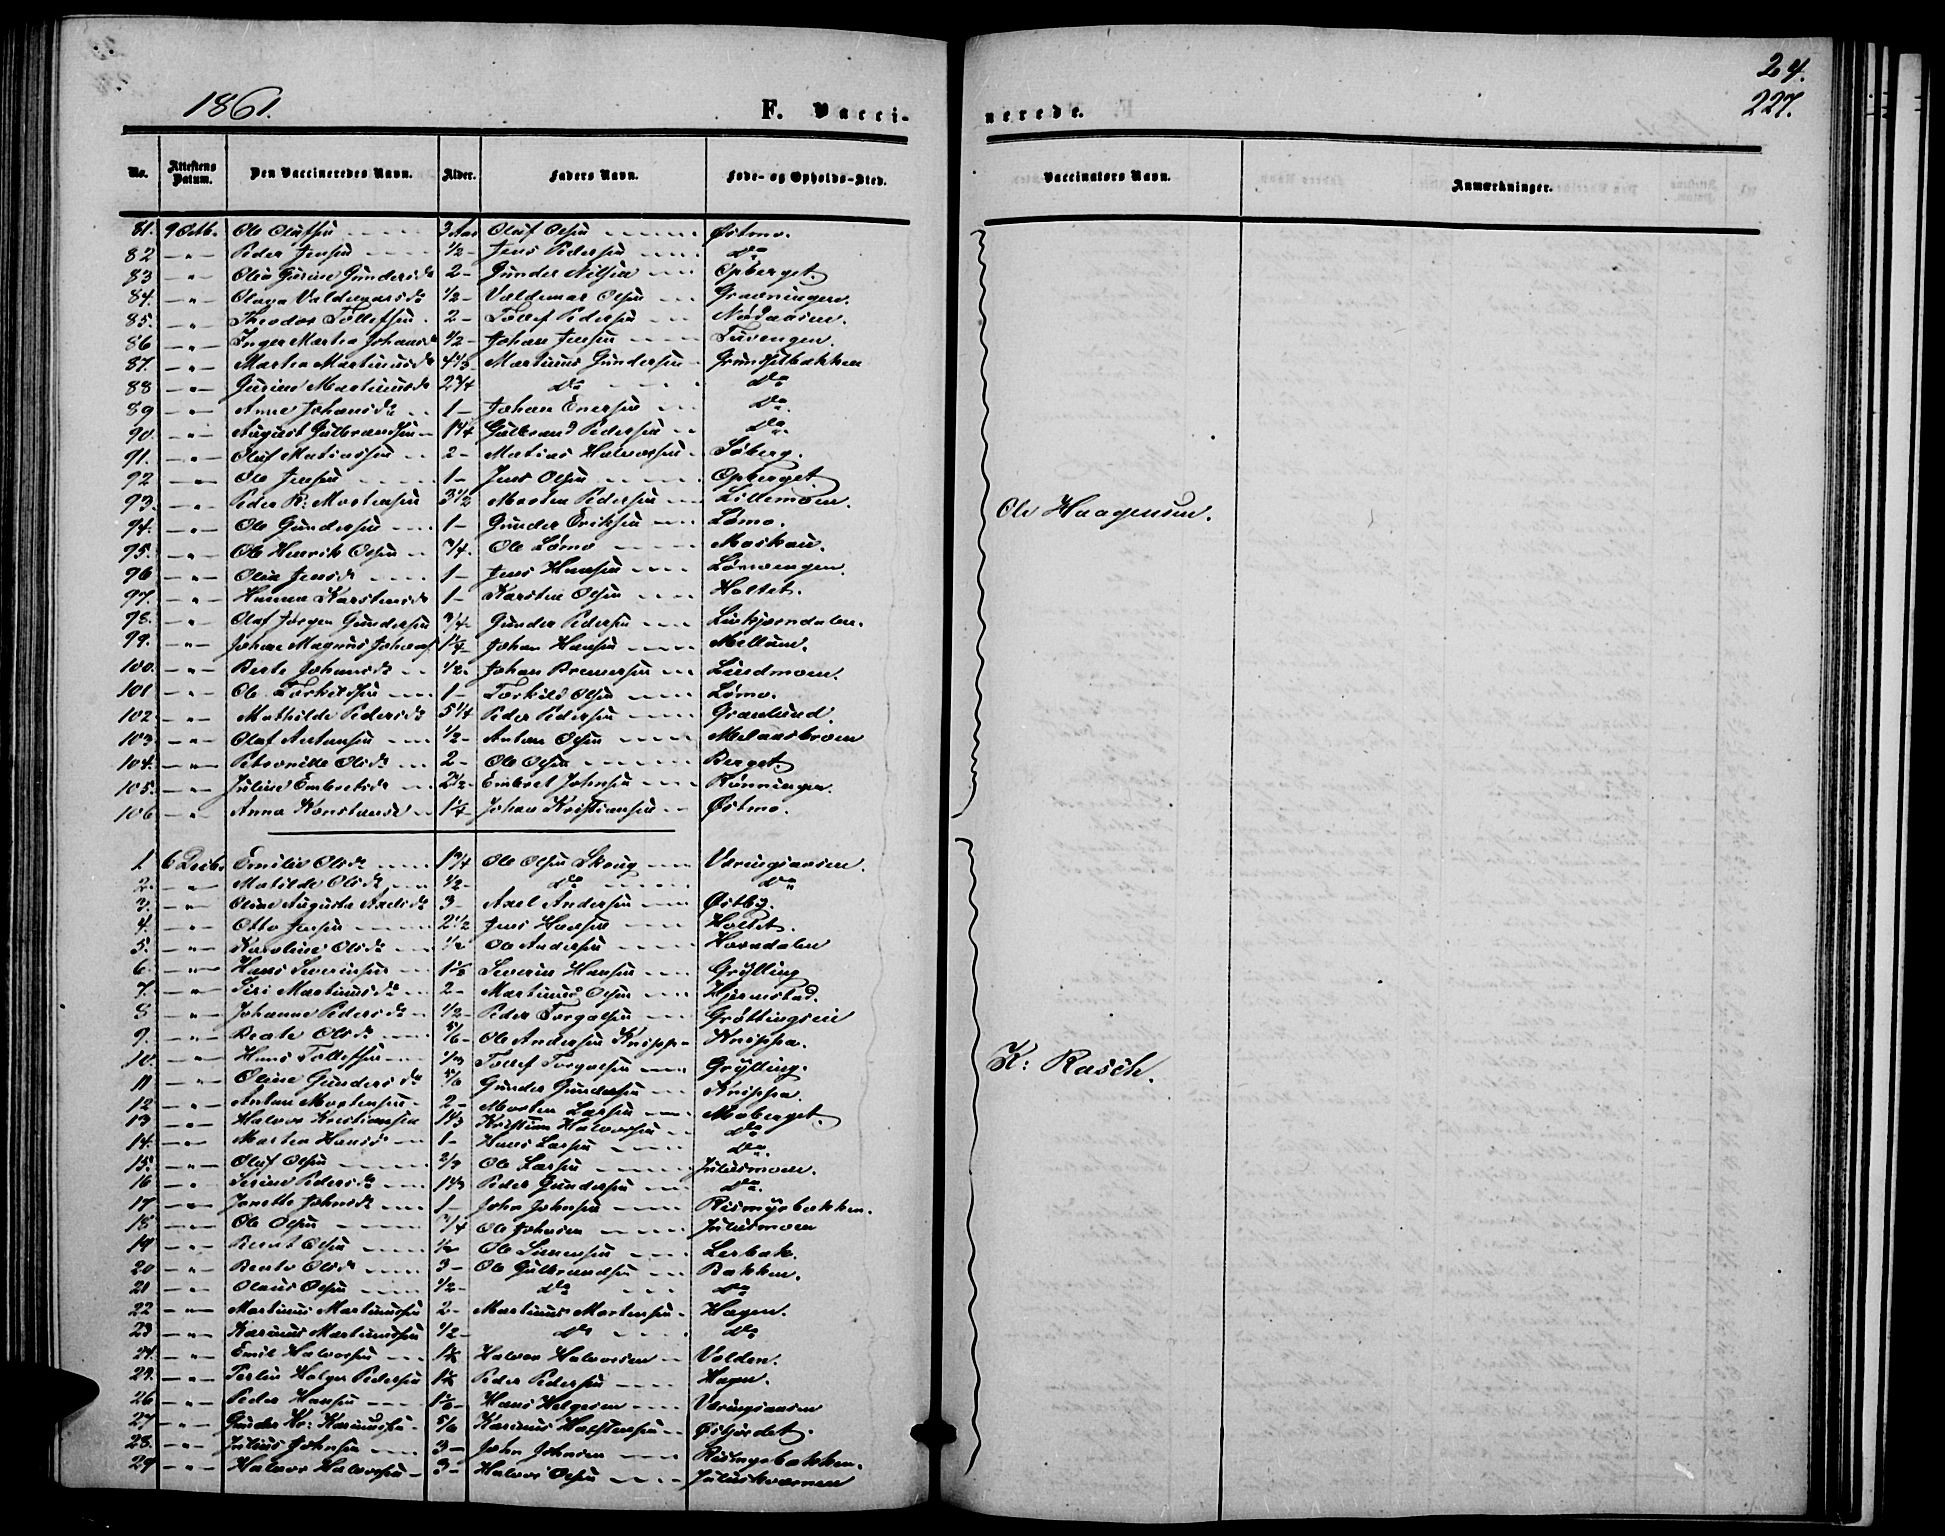 24.
227.
1861.
F. Vaccinerede.
No. Attestens Datum. Den Vaccineredes Navn. Alder. Faders Navn. Føde- og Opholds-Sted. Vaccinators Navn. Anmærkninger.
81. 9 Octb. Ole Olufsen 3 Aar Oluf Olsen Østmo.
82 — " — Peder Jensen 1/2 — Jens Pedersen do
83 — " — Olia Gurine Gundersdr 2 — Gunder Nilsen Opberget.
84. — " — Olaga Valdemarsdr 1/2 — Valdemar Olsen
85. — " — Theodor Tollefsen 2 — Tollef Pedersen Nødaasen.
86 — " — Inger Martea Johansdr 1/2 — Johan Jensen
87. — " — Martea Martinusdr Martinus Gundersen Grundsetbakken
88 — " — Gurine Martinusdr 2 3/4 do do
89 — " — Anne Johansdr 1 — Johan Enersen do
90. — " — August Gulbrandsen Gulbrand Pedersen do
91. — " — Oluf Matiassen 2 — Matias Halvorsen Søberg.
92 — " — Ole Jensen 1 — Jens Olsen Opberget
93. — " — Peder R: Mortensen 3 1/2 Morten Pedersen Lillemoen.
94. — " — Ole Gundersen 1 — Gunder Eriksen Lømo.
95. — " — Ole Henrik Olsen 3/4. Ole Lømo Moskau.
96 — " — Olia Jensdr 1 — Jens Hansen
97. — " — Hanna Karstensdr 1 — Karsten Olsen Holtet.
98. — " — Olaf Jørgen Gundersen 3/4 Gunder Pedersen
99. — " — Johan Magnus Johans. Johan Hansen Melluum.
100. — " — Berte Johansdr 1/2 — Johan Brennersen Lindmoen.
101 — " — Ole Torkildsen 1 — Torkild Olsen Lømo.
102. — " — Mathilde Pedersdr 5 1/4 Peder Pedersen Granlund.
103 — " — Olaf Antonsen 1/2 — Anton Olsen Melaasbroen
104. — " — Petronille Olsdr 2 — Ole Olsen Berget.
105. — " — Juline Embretsdr 2 1/2 — Embret Johnsen Rønningen.
106 — " — Anna Johan Kristiansen Østmo.
Ole Haagensen.
1. 6 Decb. Emilie Olsdr 1 3/4 Ole Olsen Skoug Væringsaasen.
2. — " — Matilde Olsdr 1/2 — do do
3. — " — Oline Auguste Axelsdr 3 — Axel Andersen Østby.
4. — " — Otto Jensen 2 1/2 Jens Hansen Holtet.
5. — " — Karoline Olsdr 1/2 Ole Andersen Horndalen
6. — " — Hans Severinsen Severin Hansen Grylling
7. — " — Siri Martinusdr 2 — Martinus Olsen Hjernstad.
8 — " — Johanne Pedersdr 1/2 — Peder Torgalsen Grøttingseie
9. — " — Beate Olsdr 5/6 — Ole Andersen Knippa Knippa.
10. — " — Hans Tollefsen Tollef Torgalsen Grylling.
11 — " — Oline Gundersdr 5/6 Gunder Gundersen Knippa.
12 — " — Anton Mortensen 2 — Morten Larsen Moberget
13 — " — Halvor Kristiansen Kristian Halvorsen do
14. — " — Martea Hansdr 1 — Hans Larsen do
15. — " — Oluf Olsen 2/3 Ole Larsen Julusmoen.
16 — " — Serine Pedersdr Peder Gundersen do.
17 — " — Janette Johnsdr 1 — John Johnsen Rismyrbakken.
18. — " — Ole Olsen 3/4 Ole Johnsen Julusmoen
19 — " — Bernt Olsen 1/2 Ole Simensen Lerbak.
20 — " — Beate Olsdr 3 — Ole Gulbrandsen Bakken.
21 — " — Olaus Olsen 1/2 — do do
22 — " — Martinus Martinussen 2 — Martinus Mortensen Hagen.
23 — " — Karinus Martinussen 1/2 — do do
24. — " — Emil Halvorsen Halvor Halvorsen Volden.
25. — " — Perlin Holger Pedersen Peder Pedersen Hagen.
26 — " — Peder Hansen Hans Helgesen Væringsaasen
27 — " — Gunder Kr: Karinussen 5/6 Karinus Halstensen Østjordet.
28. — " — Julius Johnsen 3 — John Johnsen Rismyrbakken.
29 — " — Halvor Halvorsen 3 — Halvor Olsen Juluskvernen
K: Rasch.